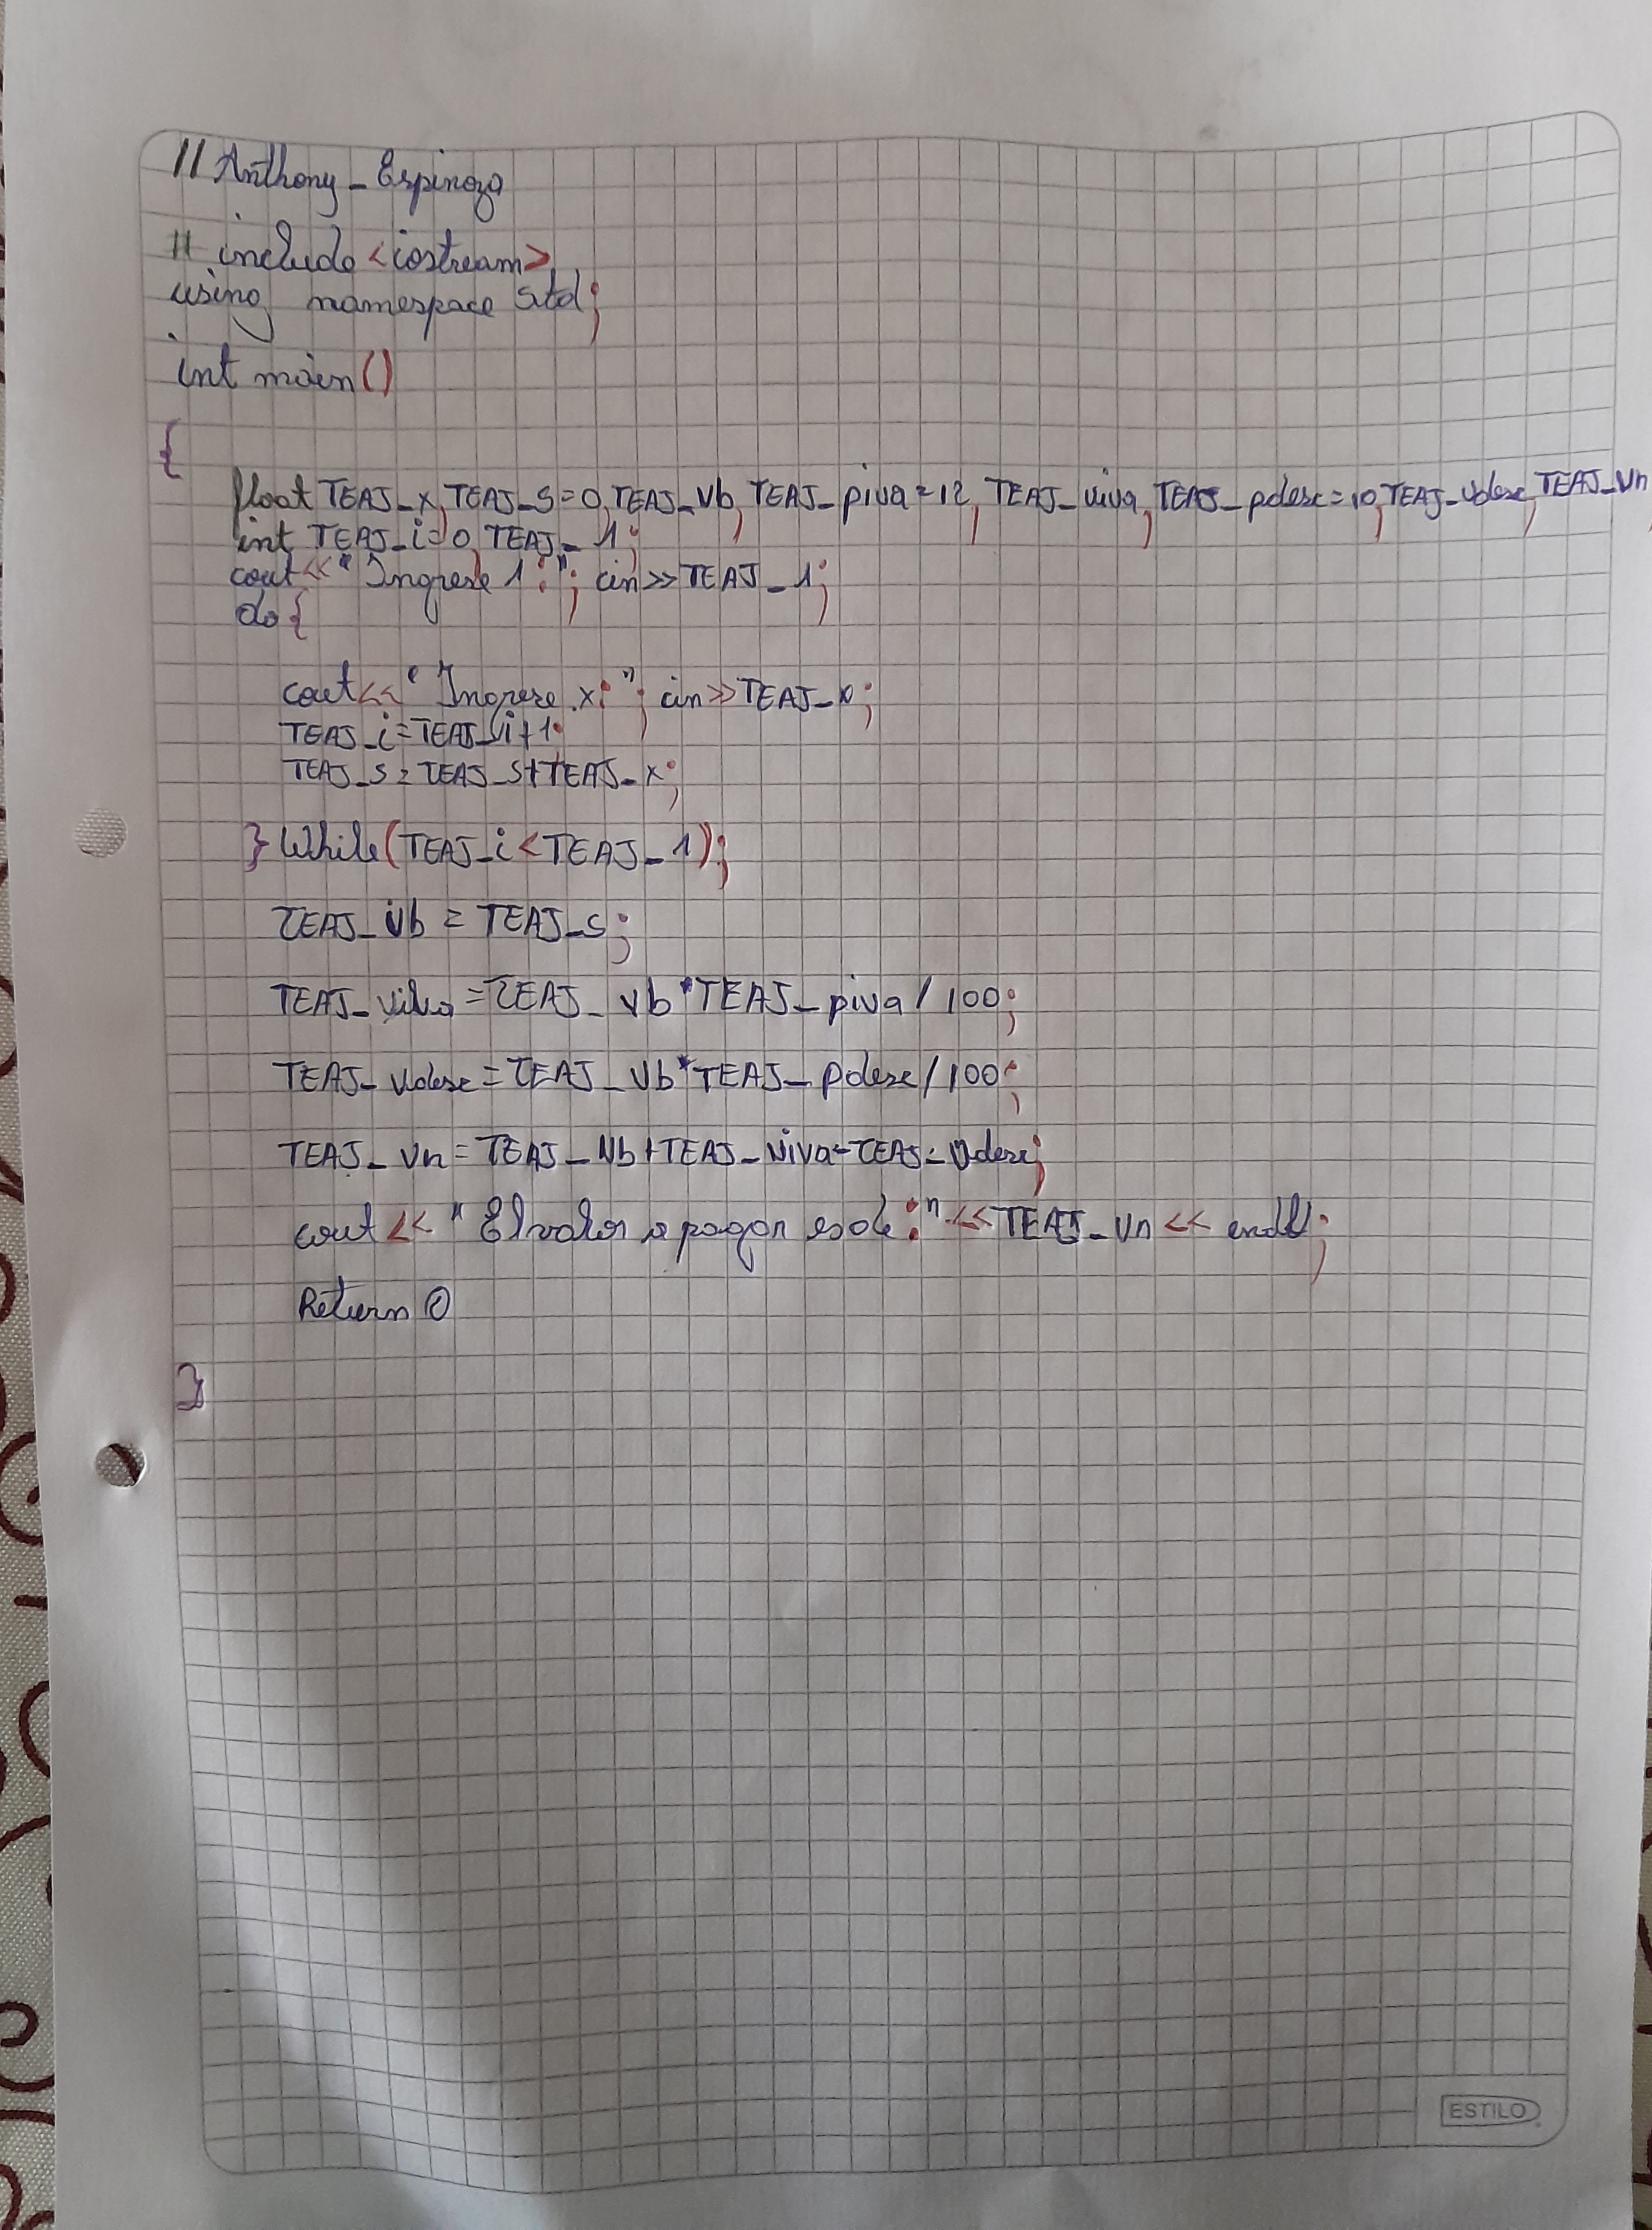 // Anthony_Espinoza
# include <iostream>
using namespace Std;
int main()
{
float TEAJ_x, TEAJ_s=0, TEAJ_vb, TEAJ_piva=12, TEAJ_viva, TEAJ_pdesc=10, TEAJ_vdesc, TEAJ_vn
int TEAJ_i=0, TEAJ_1;
cout<<"Ingrese 1:"; cin>>TEAJ_1;
do{
cout<<"Ingrese x:"; cin>>TEAJ_x;
TEAJ_i=TEAJ_i+1;
TEAJ_s=TEAJ_s+TEAJ_x;
} While(TEAJ_i<TEAJ_1);
TEAJ_vb = TEAJ_s;
TEAJ_viva=TEAJ_vb*TEAJ_piva/100;
TEAJ_vdesc=TEAJ_vb*TEAJ_pdesc/100;
TEAJ_vn=TEAJ_vb+TEAJ_viva-TEAJ_vdesc;
cout << "El valor a pagar es de:" <<TEAJ_vn << endl;
Return 0
}
ESTILO